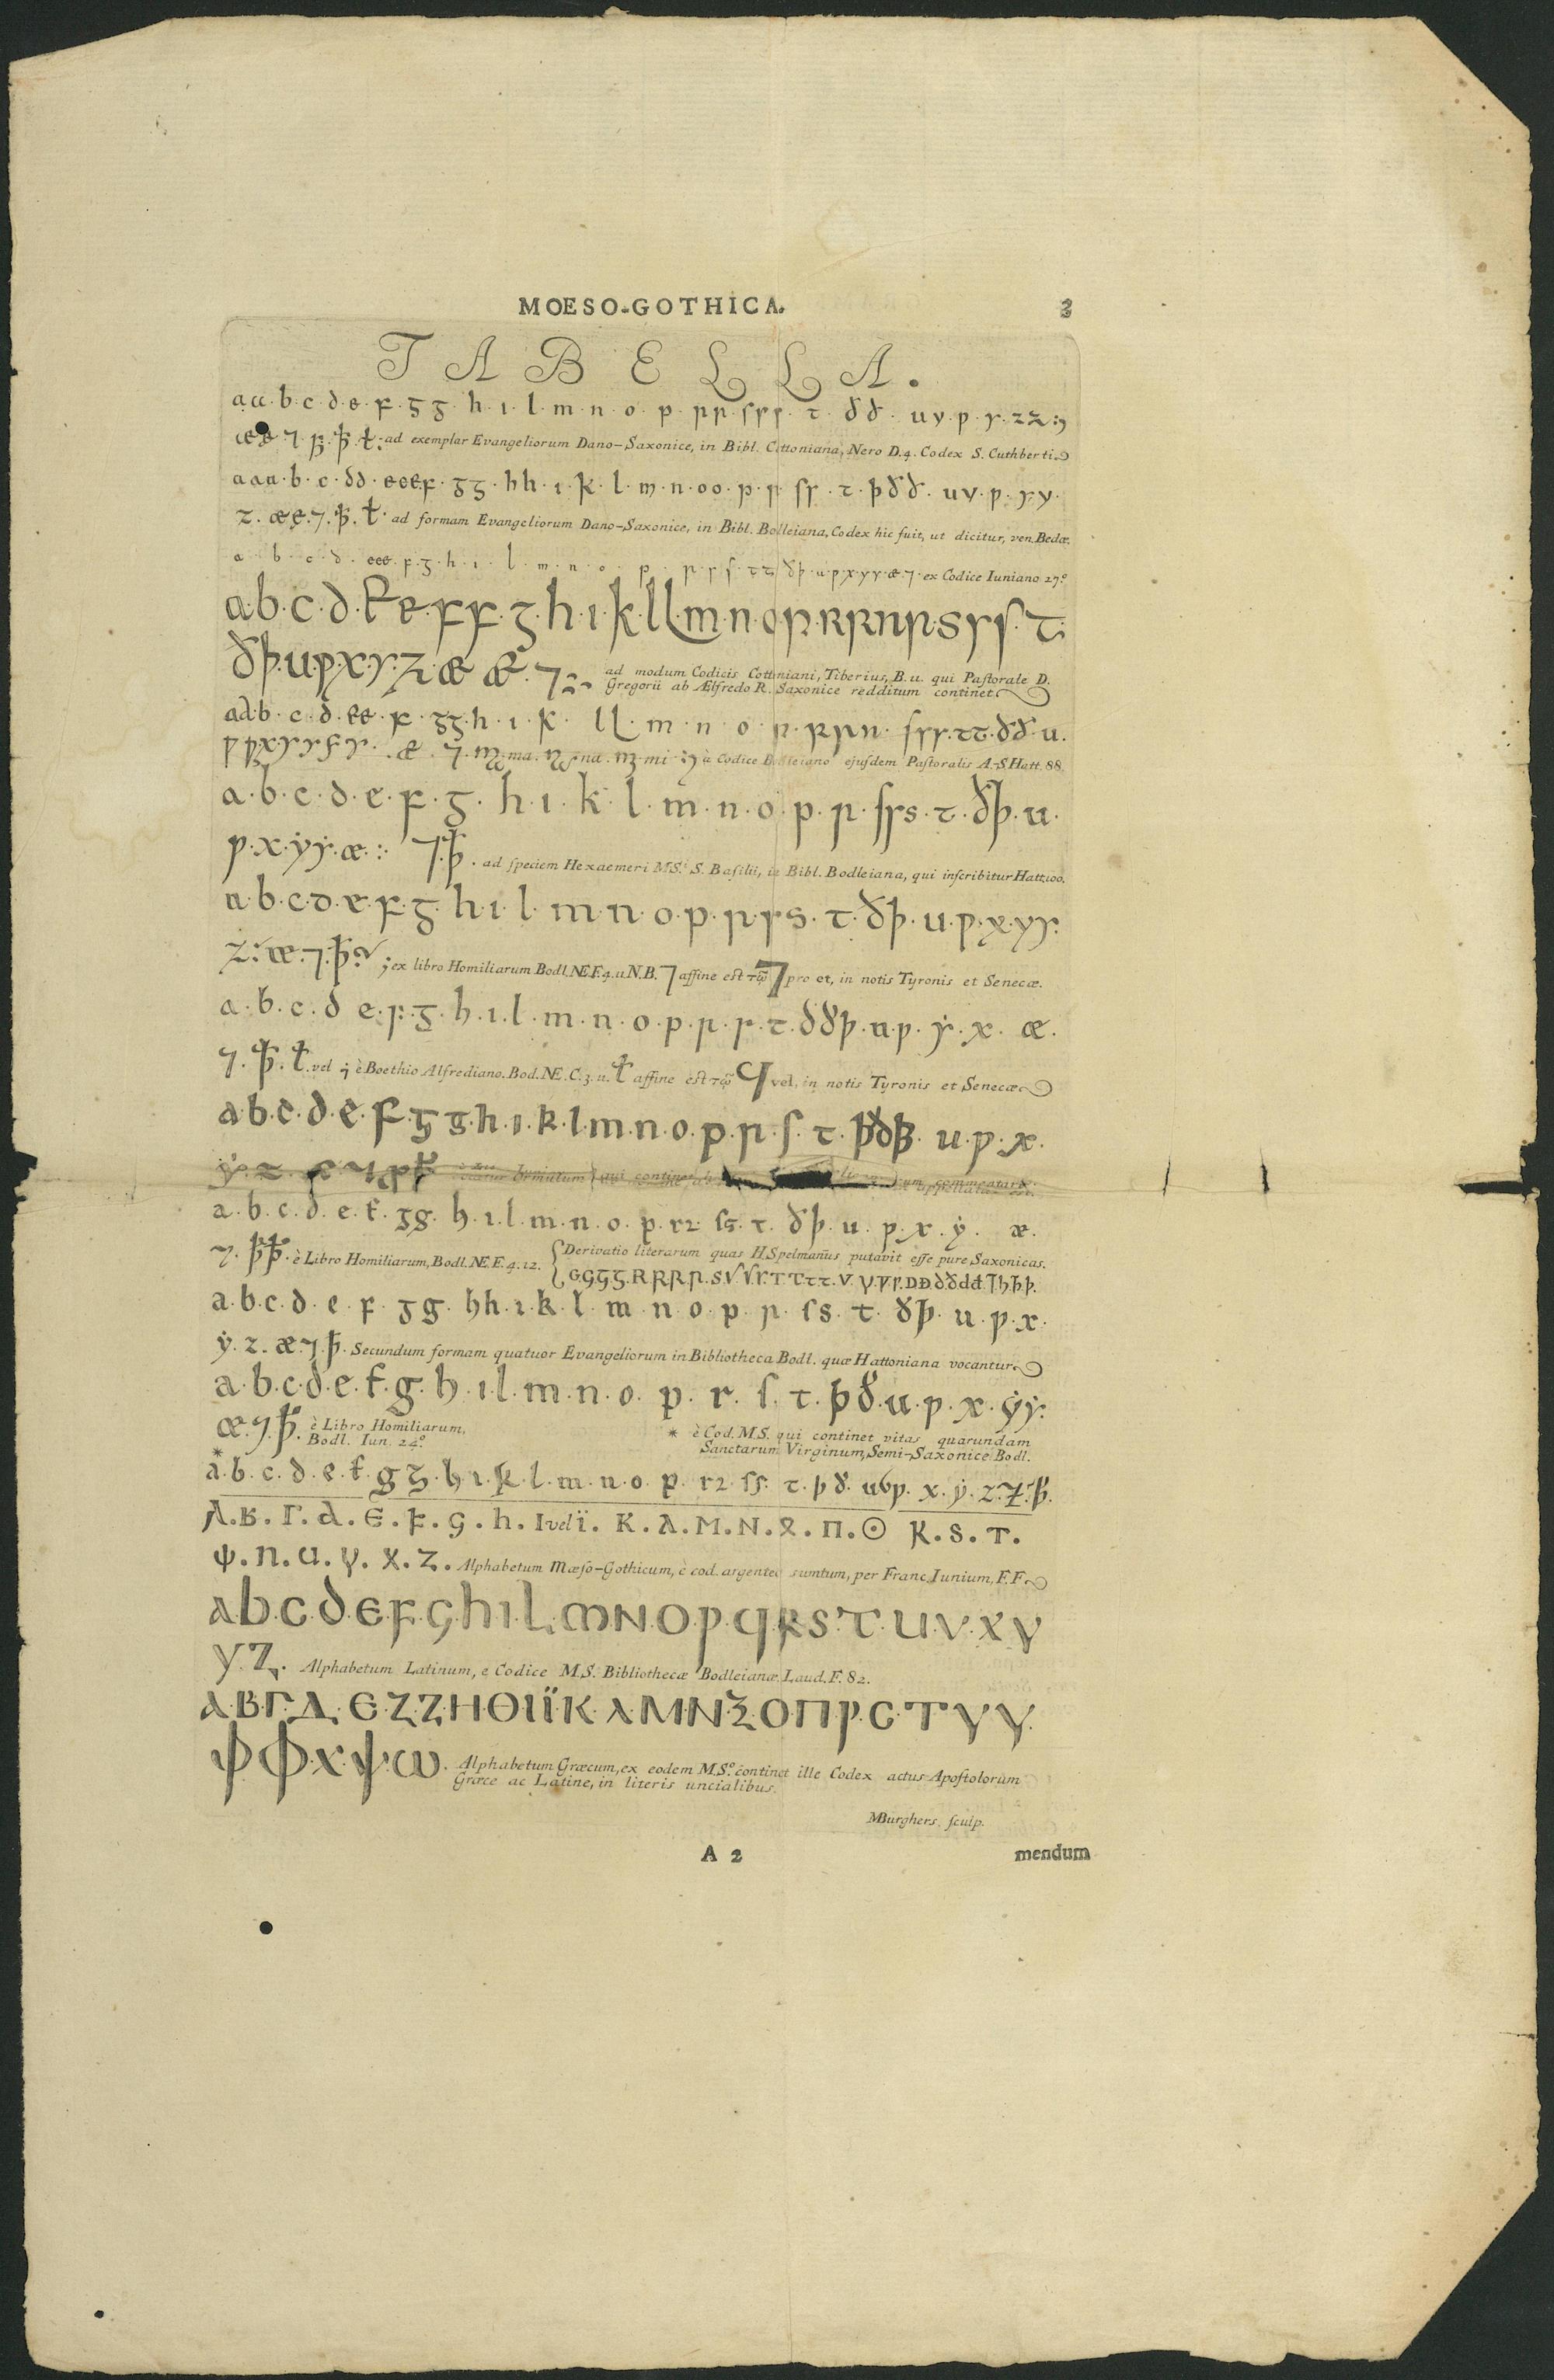 MOESO-GOTHICA. 3
TABELLA.
a a · b · c · ꝺ · e · ꝼ · ᵹ ᵹ · h · ı · l · m · n · o · p · ꞃ ꞃ · ſ ꞅ ꞅ · ꞇ · ð ð · u y · ƿ · ẏ · z z : ȝ
æ ę ⁊ · ꝥ · ꝥ · ƚ : ad exemplar Evangeliorum Dano-Saxonice, in Bibl. Cottoniana, Nero D.4. Codex S. Cuthberti
a a a · b · c · ꝺ ꝺ · e e e ꝼ · ᵹ ᵹ · h h · ı · k · l · m · n · o o · p · ꞃ · ſ ꞅ · ꞇ · þ ð ð · u v · ƿ · y y ·
z · æ ę · ⁊ · ꝥ · ƚ · ad formam Evangeliorum Dano-Saxonice, in Bibl. Bodleiana, Codex hic fuit, ut dicitur, ven. Bedæ.
a · b · c · ꝺ · e e e · ꝼ · ᵹ · h · ı · l · m · n · o · p · ꞃ · ꞅ · ſ · ꞇ ꞇ · ð þ · u · ƿ · x · y y · æ · ⁊ · ex Codice Iuniano 27.º
a · b · c · ꝺ · E · e · ꝼ · ꝼ · ᵹ · h · ı · k · l L · m · n · o · p · R · ꞃ · n · ꞃ · S · ꞅ · ſ · ꞇ ·
ð · þ · u · ƿ · x · y · z · æ · æ · ⁊ : ~ ad modum Codicis Cottoniani, Tiberius, B.u. qui Paſtorale D.
Gregorii ab Ælfredo R. Saxonice redditum continet
a a · b · c · ꝺ · e e · ꝼ · ᵹ ᵹ · h · ı · k · l L · m · n · o · p · R ꞃ n · ſ ꞅ ꞅ · ꞇ ꞇ · ð ð · u ·
æ · ⁊ · ma · na · mi : ȝ è Codice Bodleiano ejuſdem Paſtoralis A.-S. Hatt. 88.
a · b · c · ꝺ · e · ꝼ · ᵹ · h · ı · k · l · m · n · o · p · ꞃ · ſ ꞅ s · ꞇ · ð þ · u ·
ƿ · x · ẏ y · æ : ⁊ · ꝥ · ad ſpeciem Hexaemeri MS.ti S. Baſilii, in Bibl. Bodleiana, qui inſcribitur Hatt. 100.
a · b · c · ꝺ · e · ꝼ · ᵹ · h · ı · l · m · n · o · p · ꞃ · ꞅ s · ꞇ · ð þ · u · ƿ · x · y y ·
z : æ · ⁊ · ꝥ : ; ex libro Homiliarum Bodl. NE.F.4.u. N.B. ⁊ affine eſt τῷ ⁊ pro et, in notis Tyronis et Senecæ.
a · b · c · ꝺ · e · ꝼ · ᵹ · h · ı · l · m · n · o · p · ꞃ · ꞅ · ꞇ · ꝺ ð þ · u · ƿ · ẏ · x · æ ·
⁊ · ꝥ · ƚ · vel ⁊ è Boethio Alfrediano. Bod. NE.C.3.u. ƚ affine eſt τῷ vel, in notis Tyronis et Senecæ
a · b · c · ꝺ · e · ꝼ · ᵹ · g · h · ı · k · l · m · n · o · p · ꞃ · ſ · ꞇ · þ ð ꝥ · u · ƿ · x ·
a · b · c · ꝺ · e · f · ᵹ g · h · ı · l · m · n · o · p · r ꝛ · ſ s · ꞇ · ð þ · u · ƿ · x · ẏ · æ ·
⁊ · ꝥ ꝥ · è Libro Homiliarum, Bodl. NE.F.4.12. { Derivatio literarum quas H. Spelmanus putavit eſſe pure Saxonicas.
a · b · c · ꝺ · e · ꝼ · ᵹ g · h h · ı · k · l · m · n · o · p · ꞃ · ſ s · ꞇ · ð þ · u · ƿ · x ·
ẏ · z · æ · ⁊ · ꝥ · Secundum formam quatuor Evangeliorum in Bibliotheca Bodl. quæ Hattoniana vocantur
a · b · c · ꝺ · e · f · g · h · ı l · m · n · o · p · r · ſ · ꞇ · þ ð · u · ƿ · x · ẏ y ·
æ · ⁊ · ꝥ · è Libro Homiliarum,
Bodl. Iun. 24.º
* è Cod. M.S. qui continet vitas quarundam
Sanctarum Virginum, Semi-Saxonice Bodl.
* a · b · c · ꝺ · e · f · g ᵹ · h · ı · k · l · m · n · o · p · r ꝛ · ſ ſ · ꞇ · þ ð · u v ƿ · x · ẏ · z · ⁊ · ꝥ ·
𐌰 . 𐌱 . 𐌲 . 𐌳 . 𐌴 . 𐍆 . 𐌾 . 𐌷 . 𐌹 vel ï . 𐌺 . 𐌻 . 𐌼 . 𐌽 . 𐍉 . 𐍀 . 𐍈 𐍂 . 𐍃 . 𐍄 .
𐌸 . 𐌿 . 𐌵 . 𐍅 . 𐍇 . 𐌶 . Alphabetum Mæſo-Gothicum, è cod. argenteo sumtum, per Franc. Iunium, F.F.
a b · c · ꝺ · e · F · G · h · ı · L · m · N · O · p · q · R · S · T · U · V · X · Y
y · Z · Alphabetum Latinum, e Codice M.S. Bibliothecæ Bodleianæ Laud. F. 82.
Α · Β · Γ · Δ · Ε · Ζ · Ζ · Η · Θ · Ι Ϊ · Κ · Λ · Μ · Ν · Ξ · Ο · Π · Ρ · С · Τ · Υ · Υ ·
Φ · Φ · Χ · Ψ · ω · Alphabetum Græcum, ex eodem M.S.º continet ille Codex actus Apoſtolorum
Græce ac Latine, in literis uncialibus.
MBurghers. ſculp.
A 2 mendum